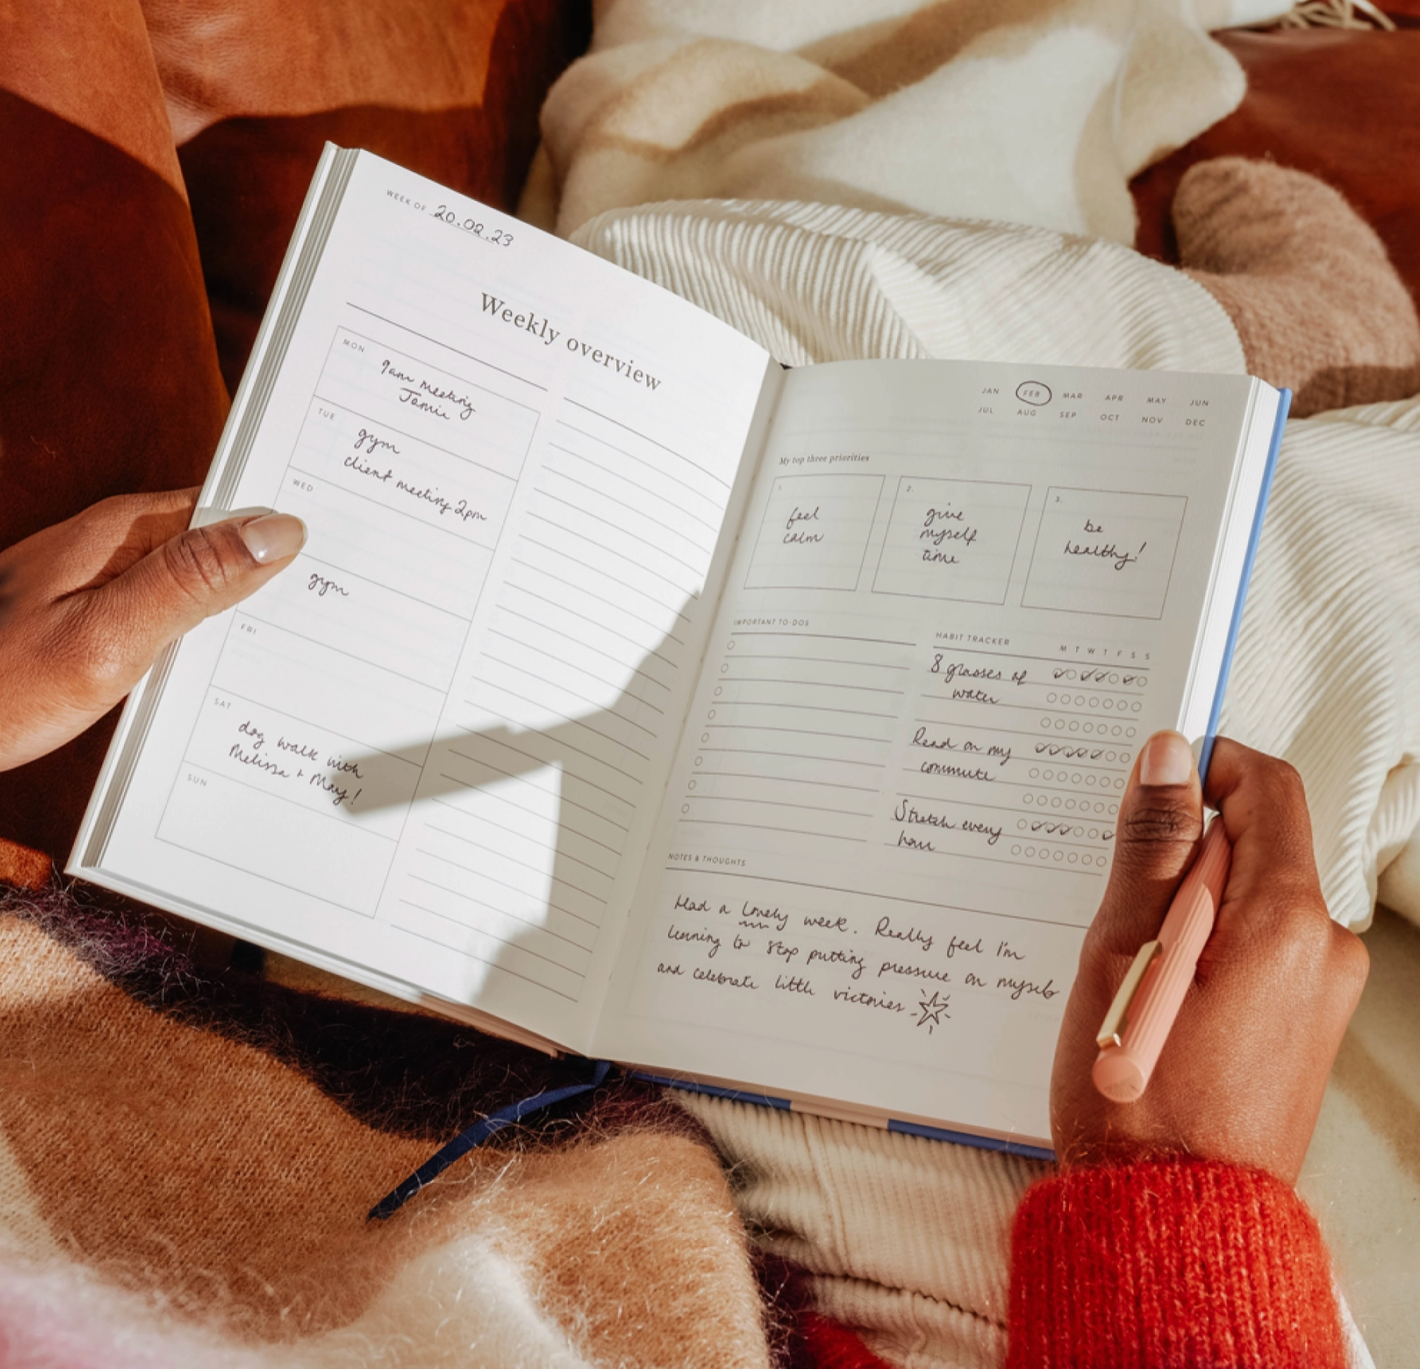 WEEK OF 20.02.23
Weekly overview
MON
9am meeting
Jamie
TUE
gym
client meeting 2pm
WED
gym
FRI
SAT
dog walk with
Melissa + May!
SUN
JAN FEB MAR APR MAY JUN
JUL AUG SEP OCT NOV DEC
My top three priorities
1.
feel
calm
2.
give
myself
time
3.
be
healthy!
IMPORTANT TO-DOS
HABIT TRACKER
M T W T F S S
8 glasses of
water
Read on my
commute
Stretch every
hour
NOTES & THOUGHTS
Had a lovely week. Really feel I'm
learning to stop putting pressure on myself
and celebrate little victories